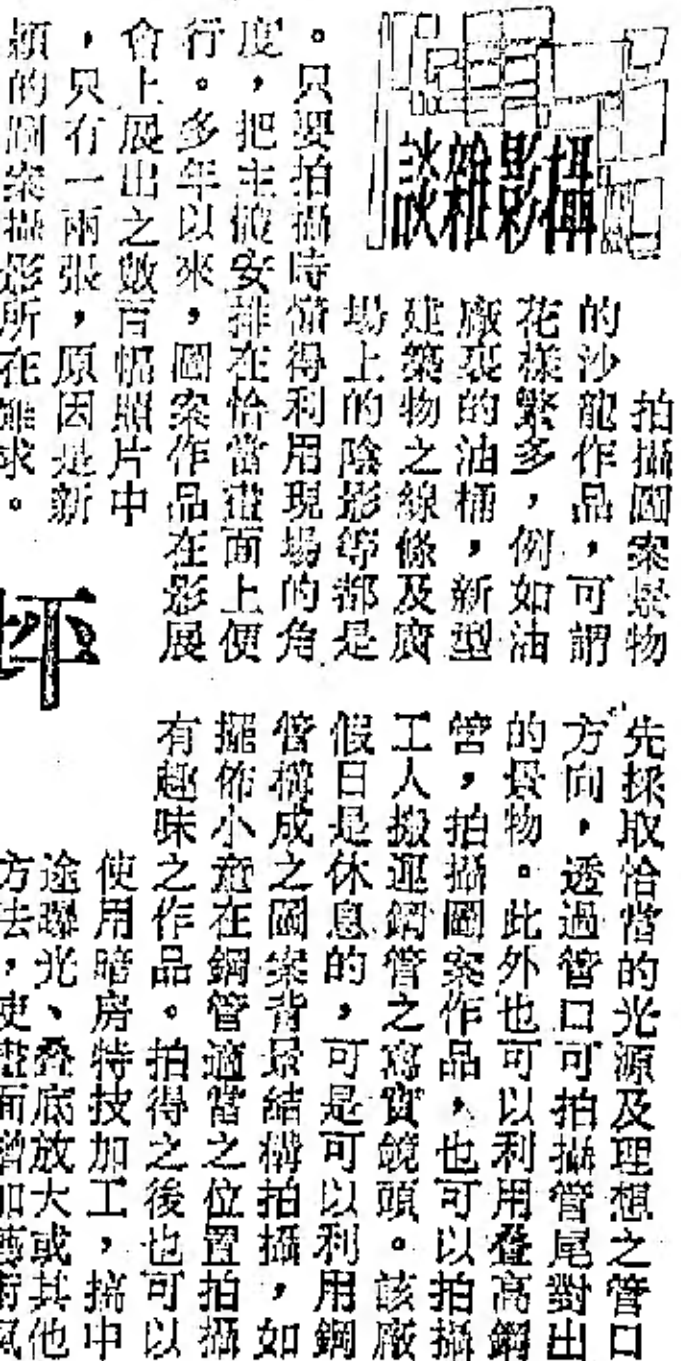 攝影雜談
拍攝圖案景物
的沙龍作品，可謂
花樣繁多，例如油
廠裏的油桶，新型
建築物之線條及廣
場上的陰影等都是
。只要拍攝時懂得利用現場的角
度，把主體安排在恰當畫面上便
行。多年以來，圖案作品在影展
會上展出之數百幅照片中
，只有一兩張，原因是新
穎的圖案攝影所在難求。
坪
先採取恰當的光源及理想之管口
方向，透過管口可拍攝管尾對出
的景物。此外也可以利用叠高鋼
管，拍攝圖案作品，也可以拍攝
工人搬運鋼管之寫實鏡頭。該廠
假日是休息的，可是可以利用鋼
管構成之圖案背景結構拍攝，如
擺佈小童在鋼管適當之位置拍攝
有趣味之作品。拍得之後也可以
使用暗房特技加工，搞中
途曝光、叠底放大或其他
方法，使畫面增加藝術氣